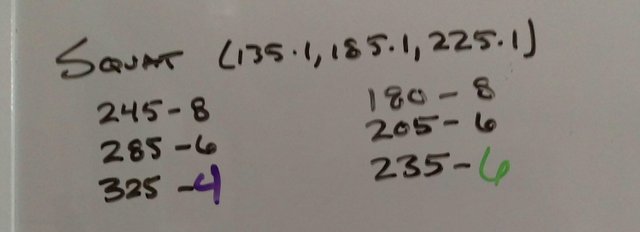 SQUAT (135.1, 185.1, 225.1)
245-8 180-8
285-6 205-6
325-4 235-6